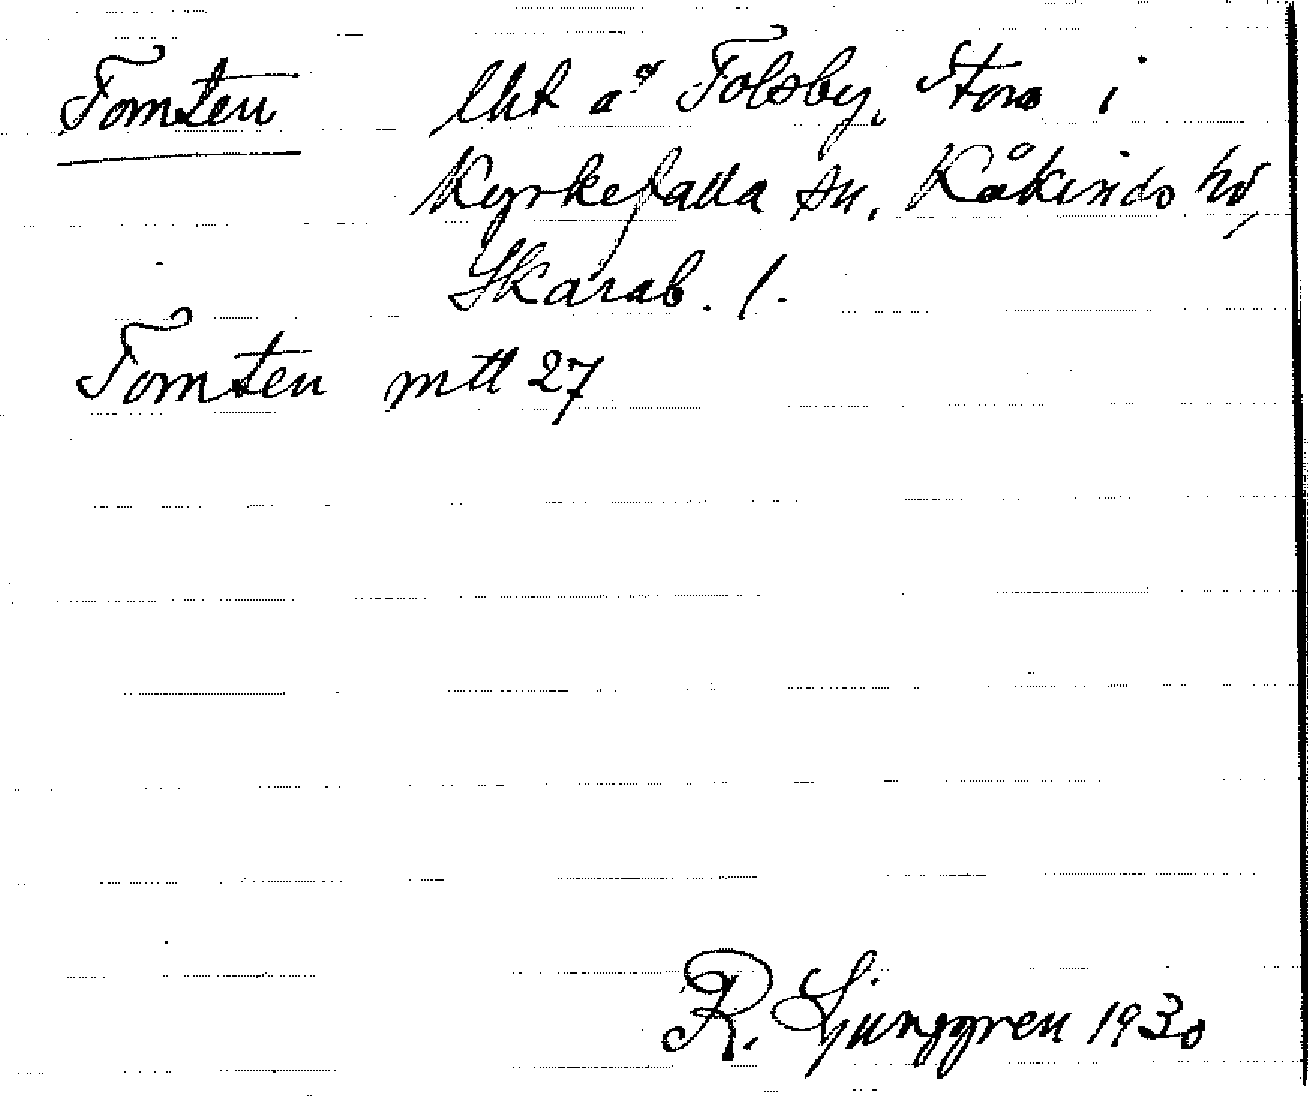 Tomten lht å Folsby, Stora i
Kyrkefalla sn. Kåkinds hd,
Skarab. l.
Tomten mtl 27
R. Ljunggren 1930